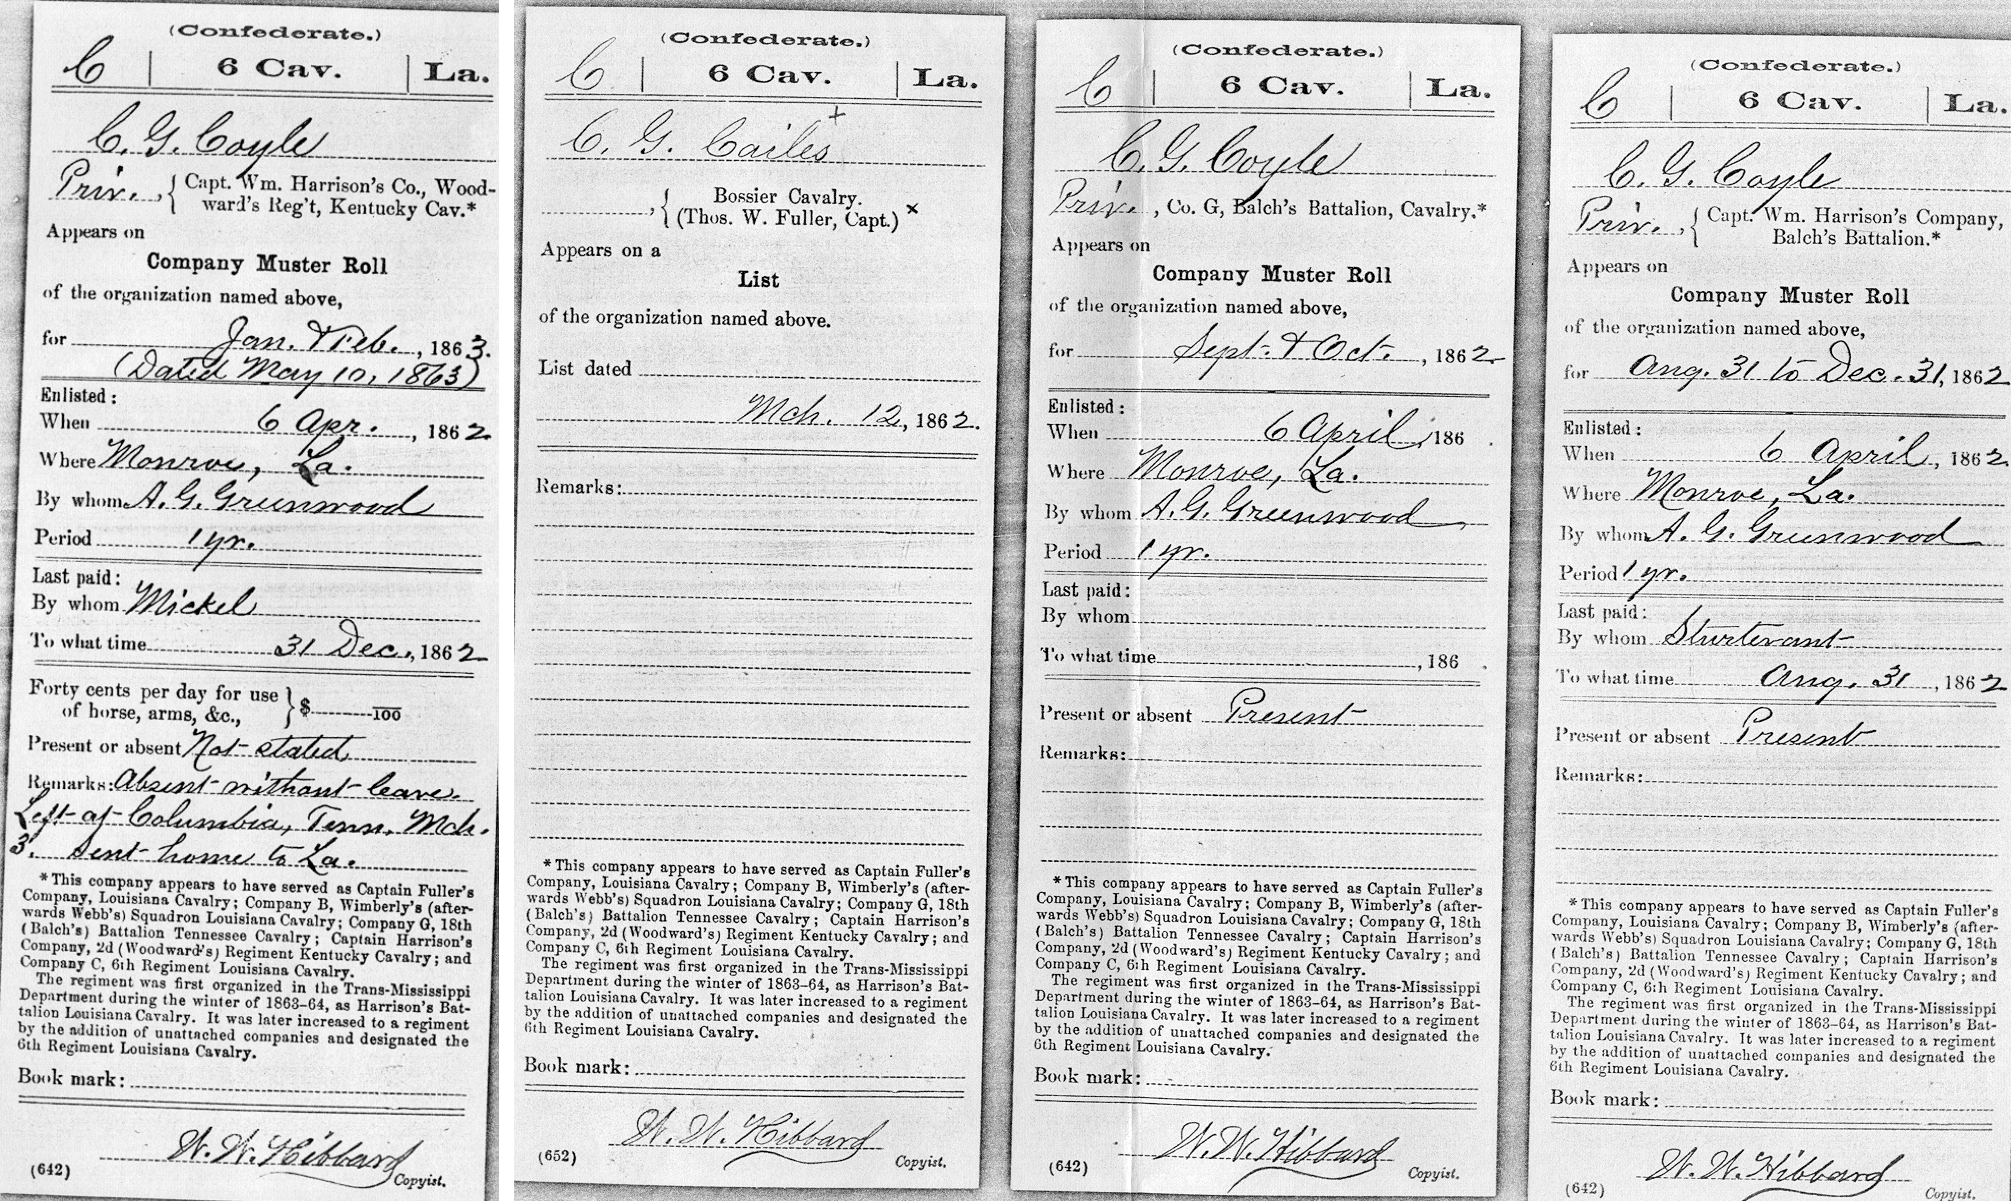 (Confederate.)
C | 6 Cav. | La.
C. G. Coyle
Priv., { Capt. Wm. Harrison's Co., Wood-
ward's Reg't, Kentucky Cav.*
Appears on
Company Muster Roll
of the organization named above,
for Jan. & Feb., 1863.
(Dated May 10, 1863)
Enlisted:
When 6 Apr., 1862
Where Monroe, La.
By whom A. G. Greenwood
Period 1 yr.
Last paid:
By whom Mickel
To what time 31 Dec., 1862
Forty cents per day for use
of horse, arms, &c., } $ 100
Present or absent Not stated
Remarks: Absent without leave.
Left at Columbia, Tenn. Mch.
3. Sent home to La.
*This company appears to have served as Captain Fuller's
Company, Louisiana Cavalry; Company B, Wimberly's (after-
wards Webb's) Squadron Louisiana Cavalry; Company G, 18th
(Balch's) Battalion Tennessee Cavalry; Captain Harrison's
Company, 2d (Woodward's) Regiment Kentucky Cavalry; and
Company C, 6th Regiment Louisiana Cavalry.
The regiment was first organized in the Trans-Mississippi
Department during the winter of 1863-64, as Harrison's Bat-
talion Louisiana Cavalry. It was later increased to a regiment
by the addition of unattached companies and designated the
6th Regiment Louisiana Cavalry.
Book mark:
W. W. Hibbard
(642) Copyist.
(Confederate.)
C | 6 Cav. | La.
C. G. Cailes +
, { Bossier Cavalry.
(Thos. W. Fuller, Capt.) x
Appears on a
List
of the organization named above.
List dated
Mch. 12, 1862.
Remarks:
*This company appears to have served as Captain Fuller's
Company, Louisiana Cavalry; Company B, Wimberly's (after-
wards Webb's) Squadron Louisiana Cavalry; Company G, 18th
(Balch's) Battalion Tennessee Cavalry; Captain Harrison's
Company, 2d (Woodward's) Regiment Kentucky Cavalry; and
Company C, 6th Regiment Louisiana Cavalry.
The regiment was first organized in the Trans-Mississippi
Department during the winter of 1863-64, as Harrison's Bat-
talion Louisiana Cavalry. It was later increased to a regiment
by the addition of unattached companies and designated the
6th Regiment Louisiana Cavalry.
Book mark:
W. W. Hibbard
(652) Copyist.
(Confederate.)
C | 6 Cav. | La.
C. G. Coyle
Priv., Co. G, Balch's Battalion, Cavalry.*
Appears on
Company Muster Roll
of the organization named above,
for Sept. & Oct., 1862
Enlisted:
When 6 April, 186 .
Where Monroe, La.
By whom A. G. Greenwood
Period 1 yr.
Last paid:
By whom
To what time , 186 .
Present or absent Present
Remarks:
*This company appears to have served as Captain Fuller's
Company, Louisiana Cavalry; Company B, Wimberly's (after-
wards Webb's) Squadron Louisiana Cavalry; Company G, 18th
(Balch's) Battalion Tennessee Cavalry; Captain Harrison's
Company, 2d (Woodward's) Regiment Kentucky Cavalry; and
Company C, 6th Regiment Louisiana Cavalry.
The regiment was first organized in the Trans-Mississippi
Department during the winter of 1863-64, as Harrison's Bat-
talion Louisiana Cavalry. It was later increased to a regiment
by the addition of unattached companies and designated the
6th Regiment Louisiana Cavalry.
Book mark:
W. W. Hibbard
(642) Copyist.
(Confederate.)
C | 6 Cav. | La.
C. G. Coyle
Priv., { Capt. Wm. Harrison's Company,
Balch's Battalion.*
Appears on
Company Muster Roll
of the organization named above,
for Aug. 31 to Dec. 31, 1862
Enlisted:
When 6 April, 1862
Where Monroe, La.
By whom A. G. Greenwood
Period 1 yr.
Last paid:
By whom Sturtevant
To what time Aug. 31, 1862
Present or absent Present
Remarks:
*This company appears to have served as Captain Fuller's
Company, Louisiana Cavalry; Company B, Wimberly's (after-
wards Webb's) Squadron Louisiana Cavalry; Company G, 18th
(Balch's) Battalion Tennessee Cavalry; Captain Harrison's
Company, 2d (Woodward's) Regiment Kentucky Cavalry; and
Company C, 6th Regiment Louisiana Cavalry.
The regiment was first organized in the Trans-Mississippi
Department during the winter of 1863-64, as Harrison's Bat-
talion Louisiana Cavalry. It was later increased to a regiment
by the addition of unattached companies and designated the
6th Regiment Louisiana Cavalry.
Book mark:
W. W. Hibbard
(642) Copyist.